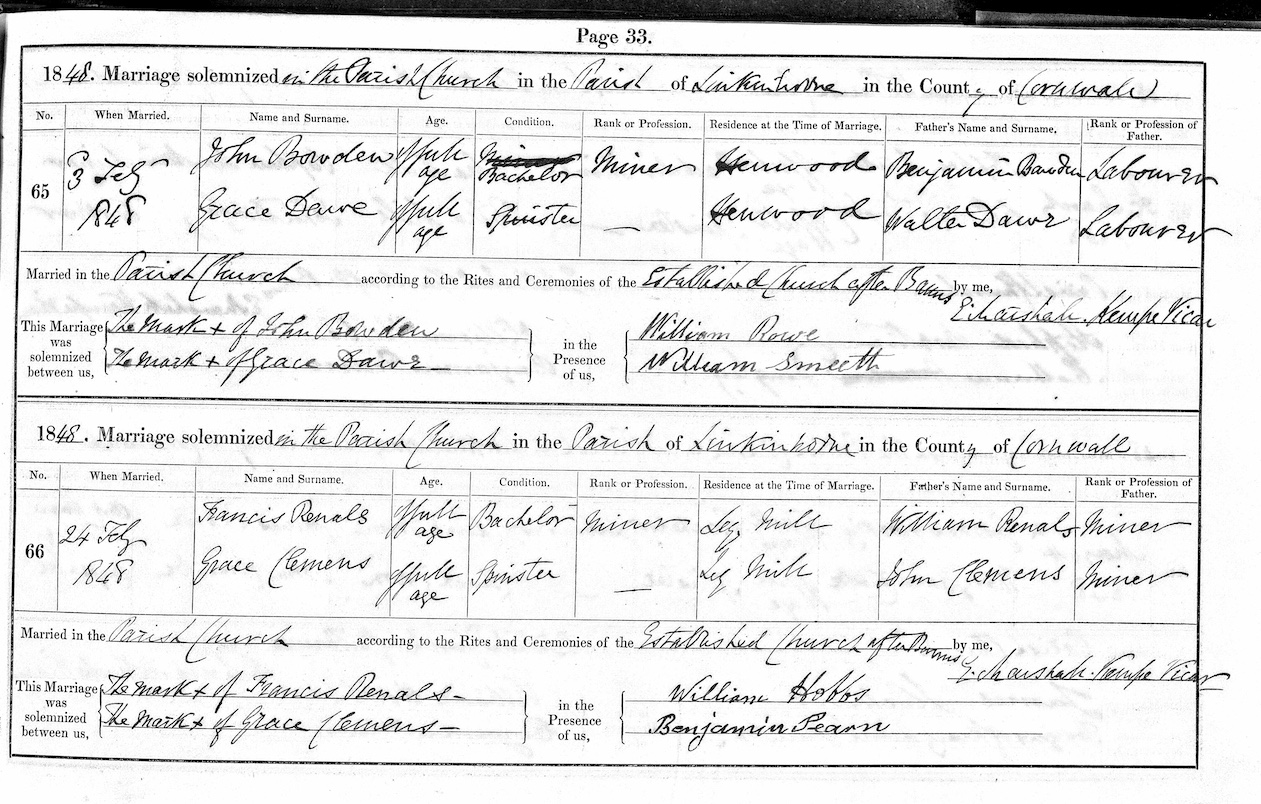 Page 33.
1848. Marriage solemnized in the Parish Church in the Parish of Linkinhorne in the County of Cornwall
No. When Married. Name and Surname. Age. Condition. Rank or Profession. Residence at the Time of Marriage. Father's Name and Surname. Rank or Profession of Father.
65 3 Feby 1848 John Bowden of full age Bachelor Miner Henwood Benjamin Bowden Labourer
Grace Dawe of full age Spinster — Henwood Walter Dawe Labourer
Married in the Parish Church according to the Rites and Ceremonies of the Established Church after Banns by me,
E. Marshall Kempe Vicar
This Marriage was solemnized between us, The Mark + of John Bowden
The Mark + of Grace Dawe
in the Presence of us, William Rowe
William Smeeth
1848. Marriage solemnized in the Parish Church in the Parish of Linkinhorne in the County of Cornwall
No. When Married. Name and Surname. Age. Condition. Rank or Profession. Residence at the Time of Marriage. Father's Name and Surname. Rank or Profession of Father.
66 24 Feby 1848 Francis Renals of full age Bachelor Miner Ley Mill William Renals Miner
Grace Clemens of full age Spinster — Ley Mill John Clemens Miner
Married in the Parish Church according to the Rites and Ceremonies of the Established Church after Banns by me,
E. Marshall Kempe Vicar
This Marriage was solemnized between us, The Mark + of Francis Renals
The Mark + of Grace Clemens
in the Presence of us, William Hobbs
Benjamin Pearn